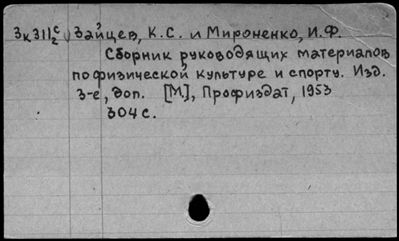 3к311 с/2 Зайцев, К.С. и Мироненко, И.Ф.
Сборник руководящих материалов
по физической культуре и спорту. Изд.
3-е, доп. [М.], Профиздат, 1953
304 с.